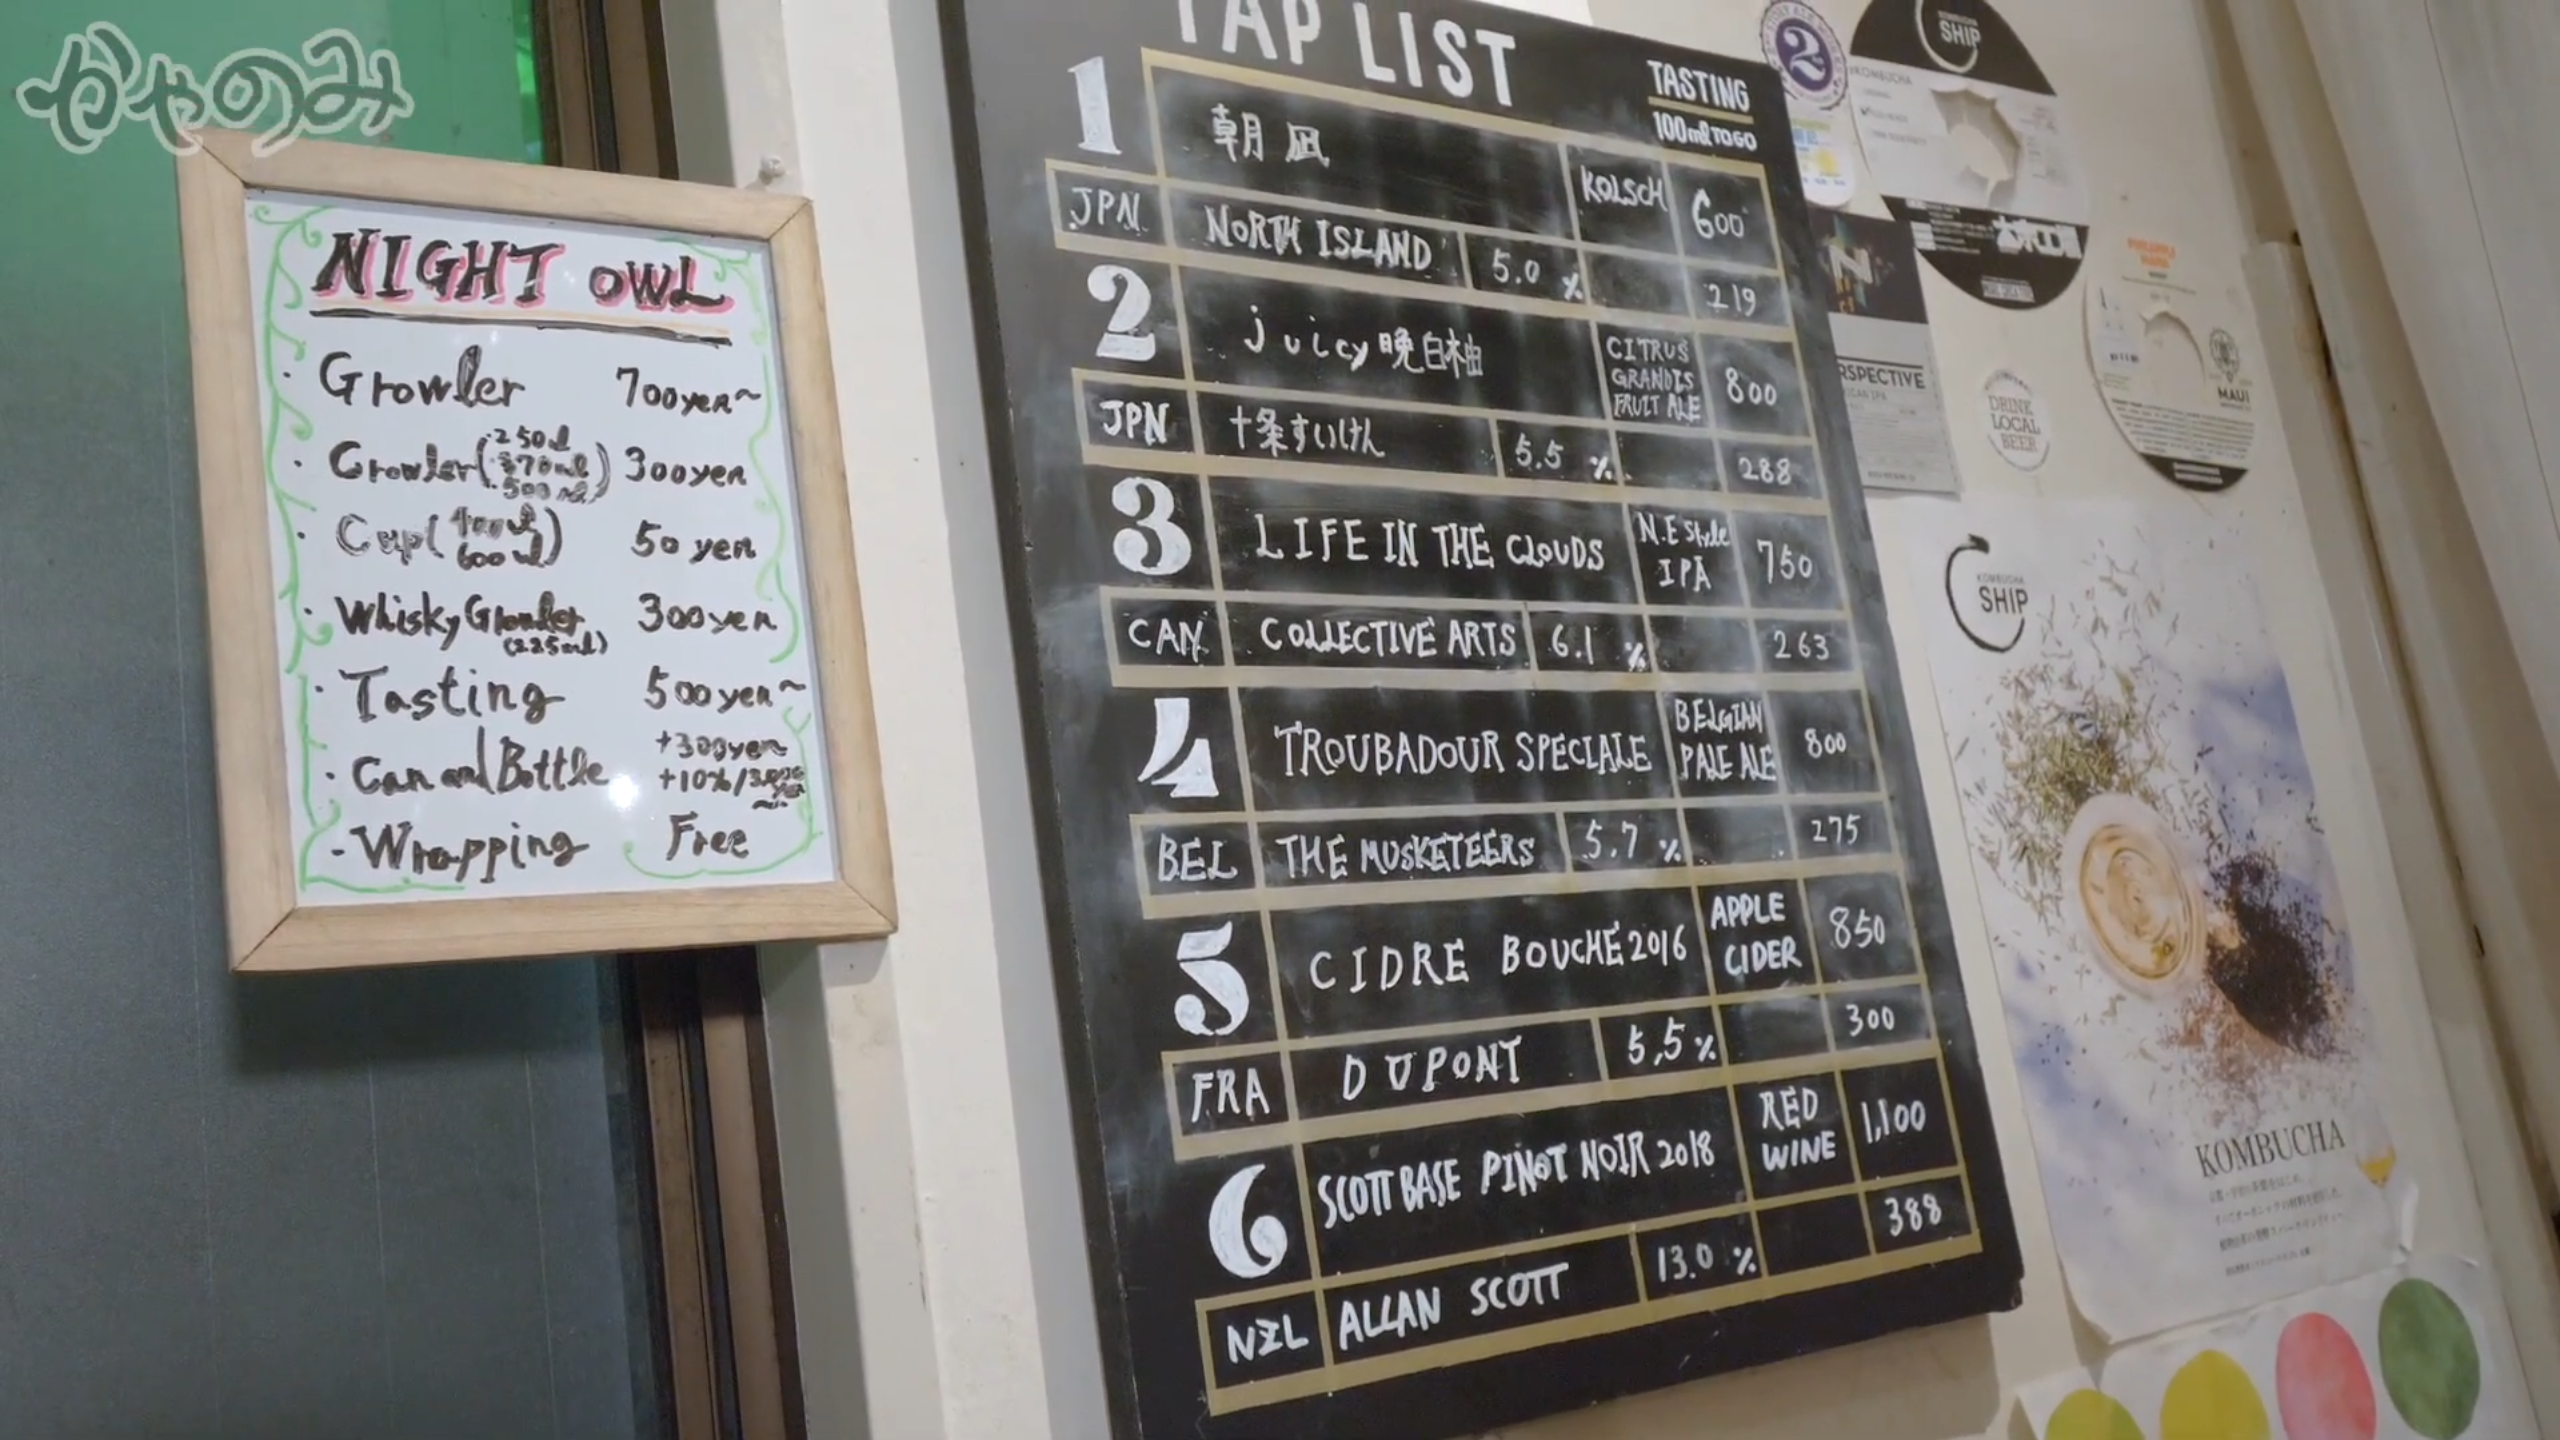 かやのみ
NIGHT OWL
・Growler 700yen~
・Growler(・250ml ・370ml ・500ml) 300yen
・Cup( 600ml) 50yen
・Whisky Growler (225ml) 300yen
・Tasting 500yen~
・Can and Bottle +300yen
+10%
・Wrapping Free
TAP LIST
TASTING
100ml TO GO
1 朝凪 KOLSCH 600
JPN NORTH ISLAND 5.0 % 219
2 juicy晩白柚 CITRUS GRANDIS FRUIT ALE 800
JPN 十条すいけん 5.5 % 288
3 LIFE IN THE CLOUDS N.E Style IPA 750
CAN COLLECTIVE ARTS 6.1 % 263
4 TROUBADOUR SPECIALE BELGIAN PALE ALE 800
BEL THE MUSKETEERS 5.7 % 275
5 CIDRE BOUCHE 2016 APPLE CIDER 850
FRA DUPONT 5,5 % 300
6 SCOTT BASE PINOT NOIR 2018 RED WINE 1,100
NZL ALLAN SCOTT 13.0 % 388
2
SHIP
KOMBUCHA
N
RSPECTIVE
DRINK
LOCAL
BEER
MAUI
KOMBUCHA
SHIP
KOMBUCHA